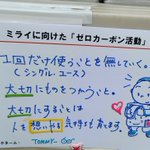 ミライに向けた「ゼロカーボン活動」
1回だけ使うことを無していく。
(シングルユース)
大切にものをつかうこと。
大切にすることは
人を想いやる気持ちも育てます。
TOMMY-GET